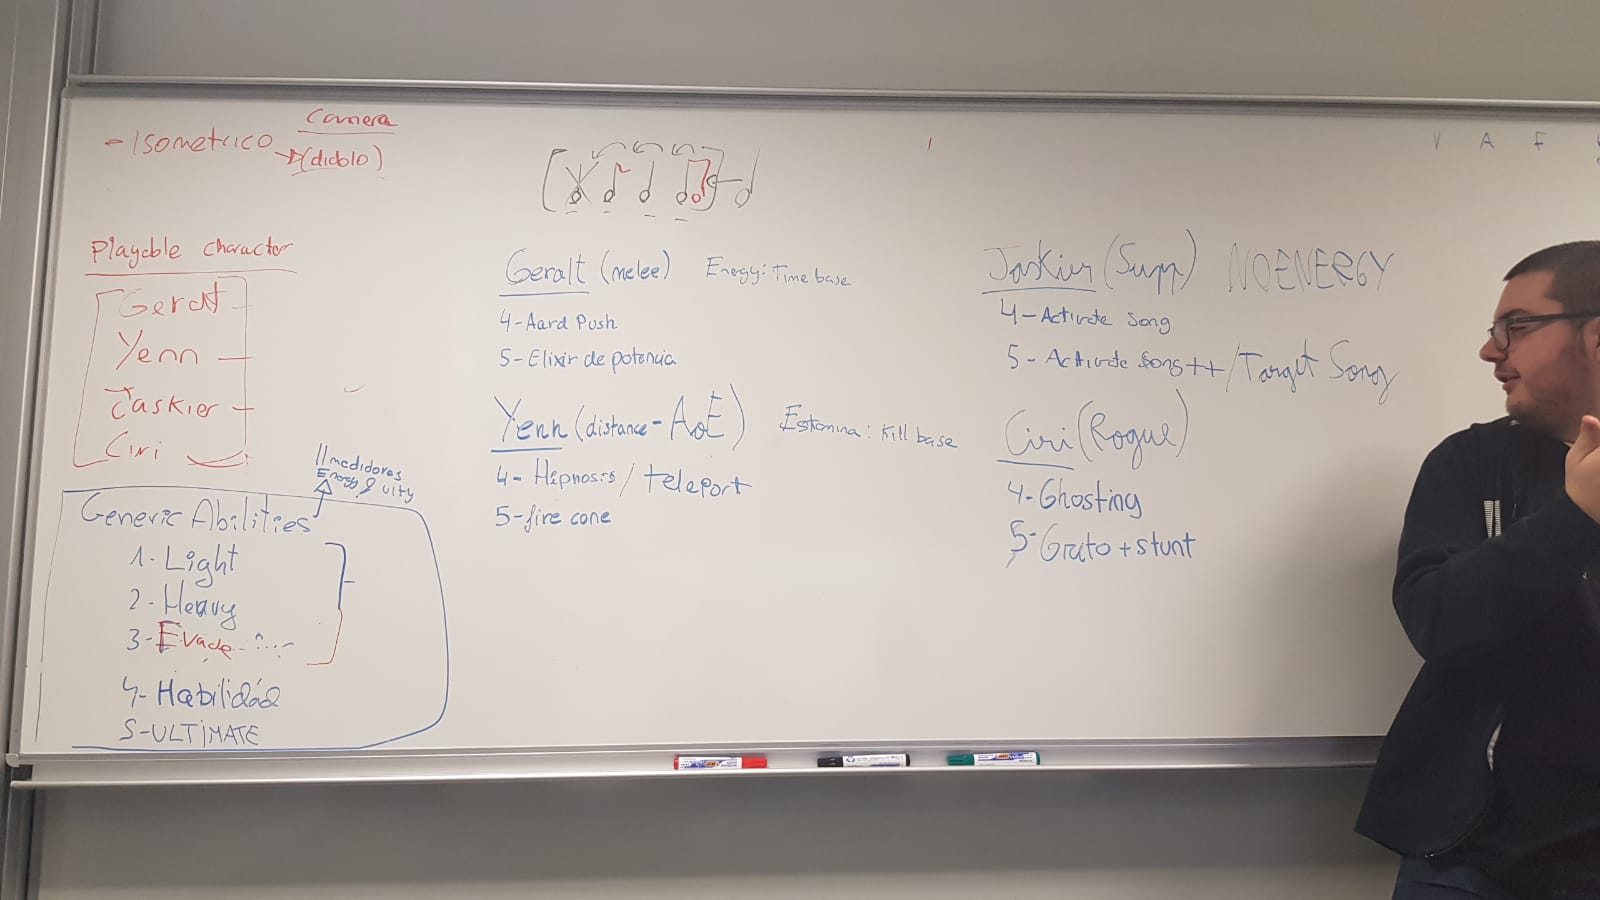 Camera
- Isometrico
(diablo)
Playable character
Geralt
Yenn
Jaskier
Ciri
// medidores
Energy & ulty
Generic Abilities
1- Light
2- Heavy
3- Evade
4- Habilidad
5- ULTiMATE
Geralt (melee) Energy: Time base
4- Aard Push
5- Elixir de potencia
Yenn (distance - AoE) Estamina: Kill base
4- Hipnosis / teleport
5- fire cone
Jaskier (Supp) NO ENERGY
4- Activate Song
5- Activate song ++ / Target Song
Ciri (Rogue)
4- Ghosting
5- Grito + stunt
V A F